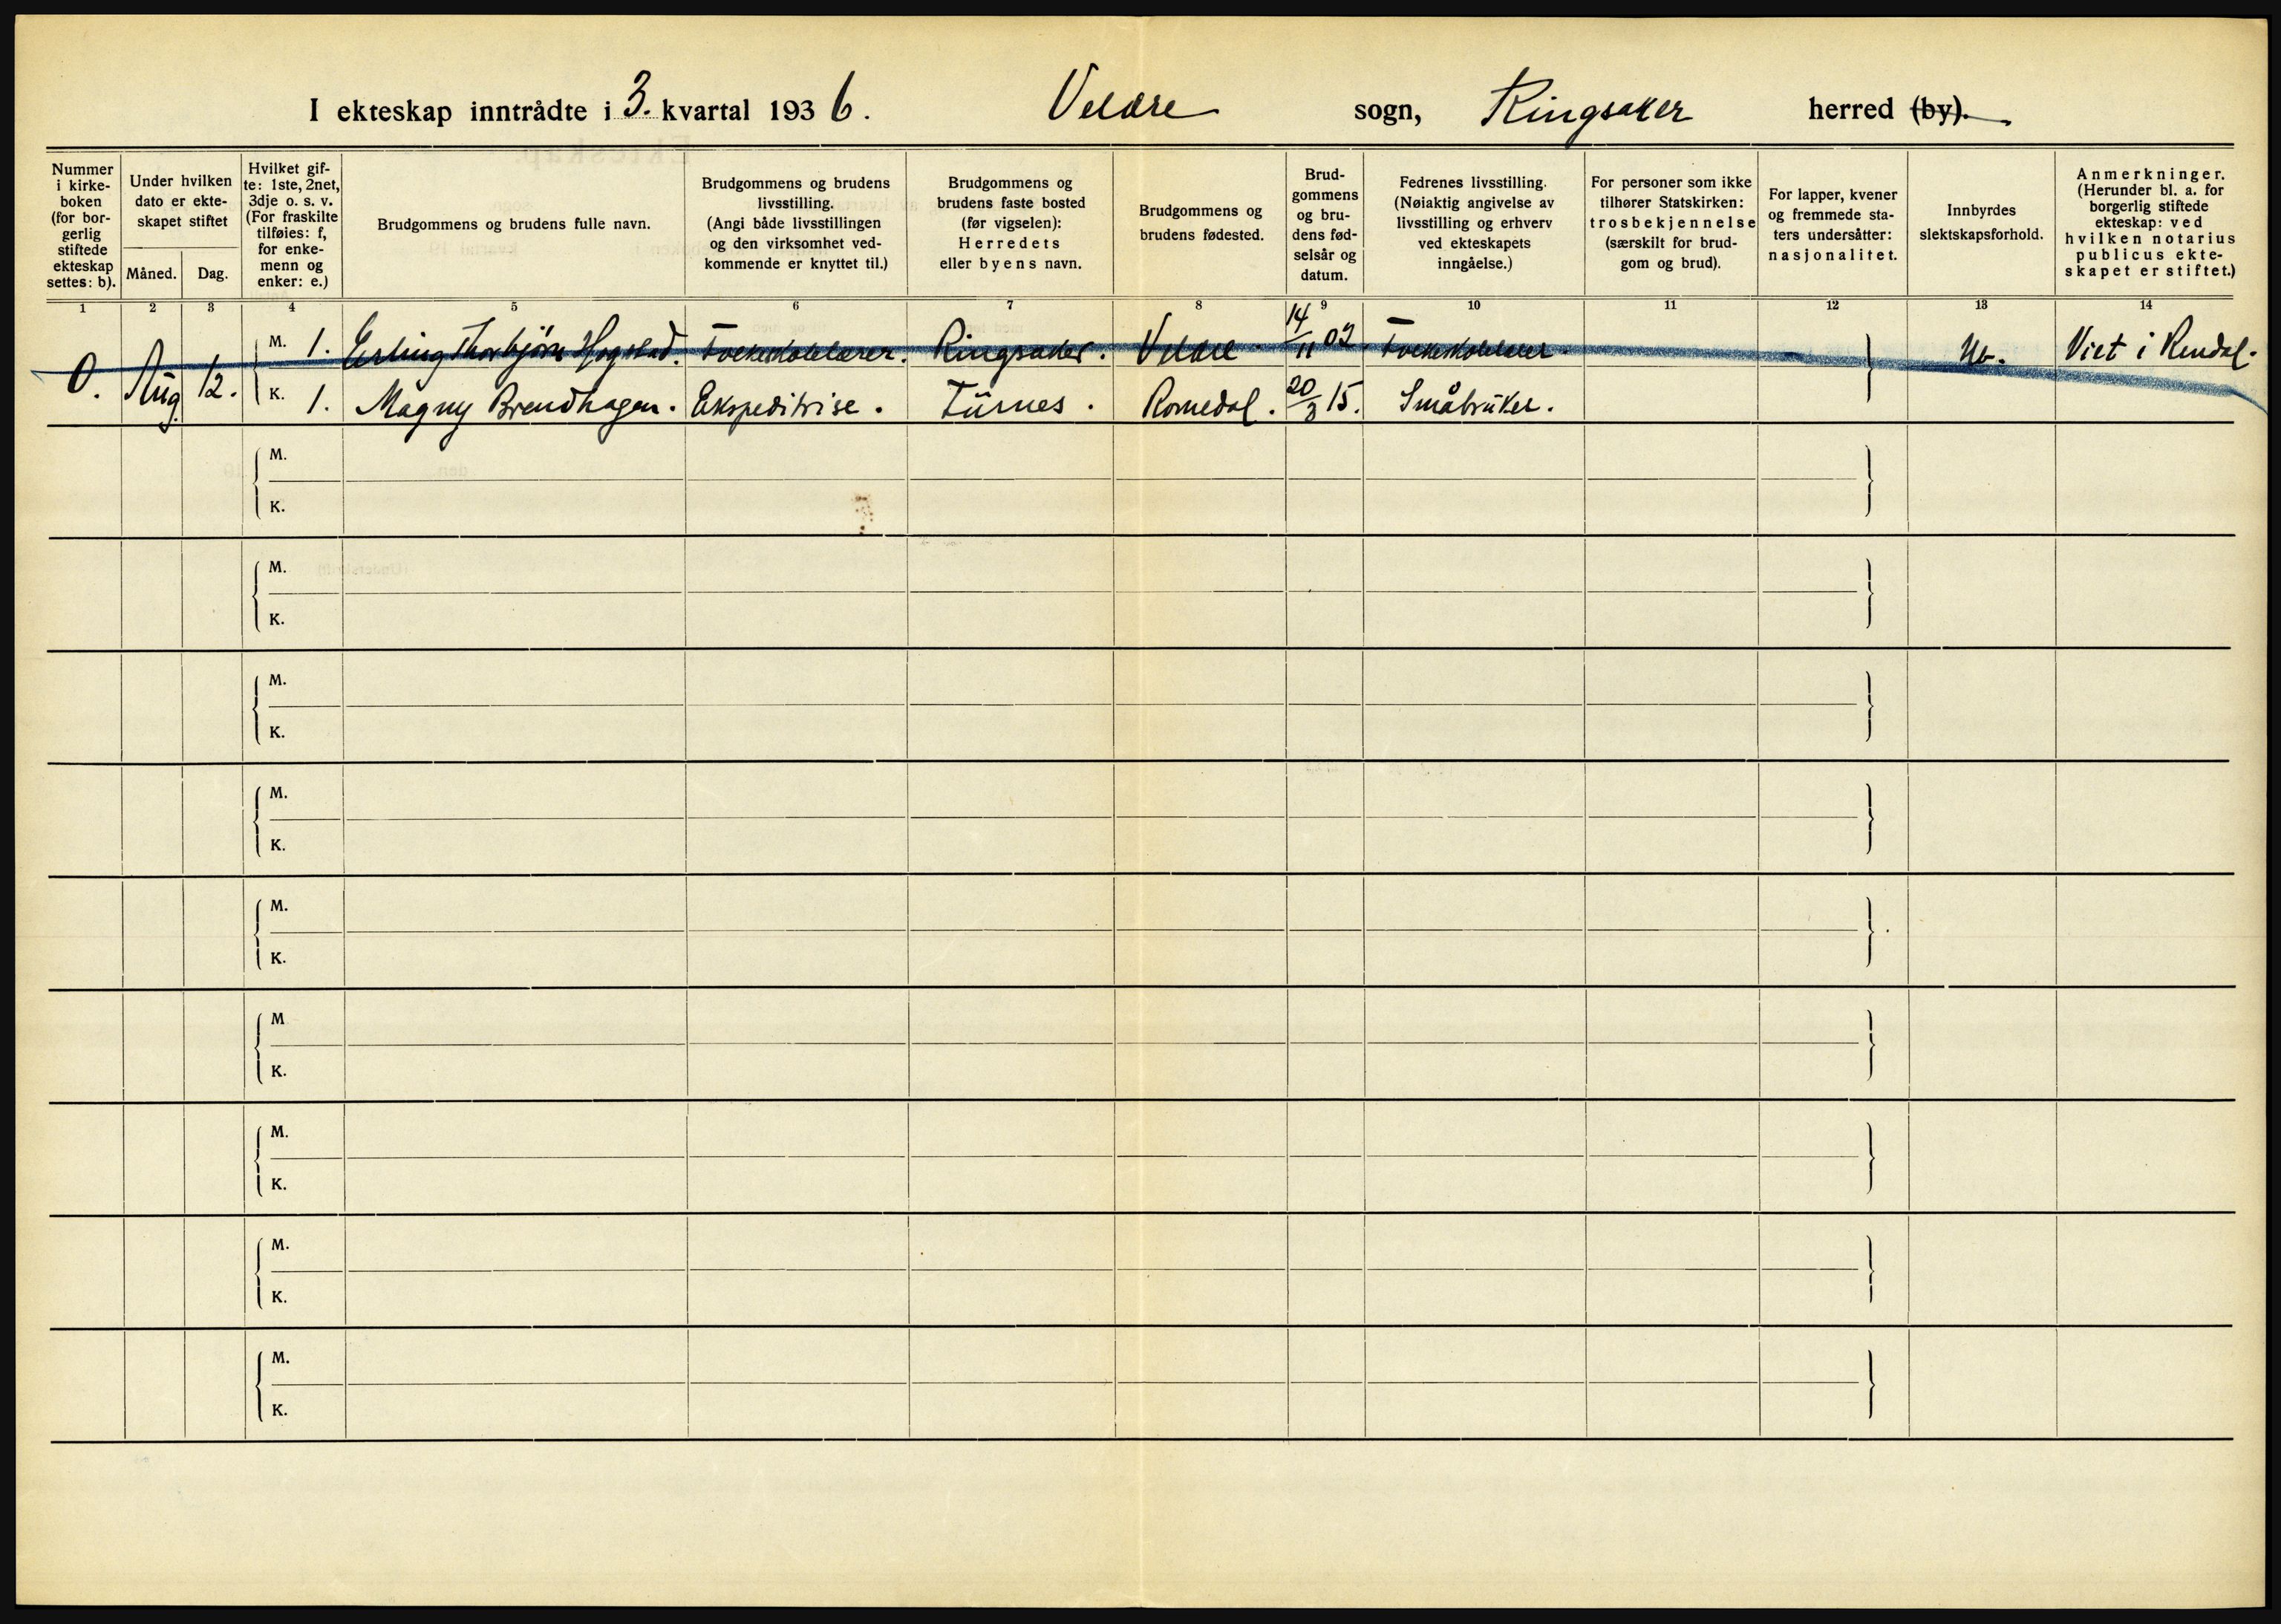 I ekteskap inntrådte i 3. kvartal 1936. Veldre sogn, Ringsaker herred (by).
Nummer i kirke- boken (for bor- gerlig stiftede ekteskap settes: b).
Under hvilken dato er ekte- skapet stiftet
Måned. Dag.
Hvilket gif- te: 1ste, 2net, 3dje o. s. v. (For fraskilte tilføies: f, for enke- menn og enker: e.)
Brudgommens og brudens fulle navn.
Brudgommens og brudens livsstilling. (Angi både livsstillingen og den virksomhet ved- kommende er knyttet til.)
Brudgommens og brudens faste bosted (før vigselen): Herredets eller byens navn.
Brudgommens og brudens fødested.
Brud- gommens og bru- dens fød- selsår og datum.
Fedrenes livsstilling. (Nøiaktig angivelse av livsstilling og erhverv ved ekteskapets inngåelse.)
For personer som ikke tilhører Statskirken: trosbekjennelse (særskilt for brud- gom og brud).
For lapper, kvener og fremmede sta- ters undersåtter: nasjonalitet.
Innbyrdes slektskapsforhold.
Anmerkninger. (Herunder bl. a. for borgerlig stiftede ekteskap: ved hvilken notarius publicus ekte- skapet er stiftet.)
1 2 3 4 5 6 7 8 9 10 11 12 13 14
M. 1. Erling Thorbjørn Hogstad. Folkeskolelærer. Ringsaker. Veldre. 14/11 02. Folkeskolelærer. Ub. Viet i Rendal.
0. Aug. 12.
K. 1. Magny Brendhagen. Ekspeditrise. Furnes. Romedal. 20/3 15. Småbruker.
M.
K.
M.
K.
M.
K.
M.
K.
M.
K.
M
K.
M.
K.
M.
K.
M.
K.